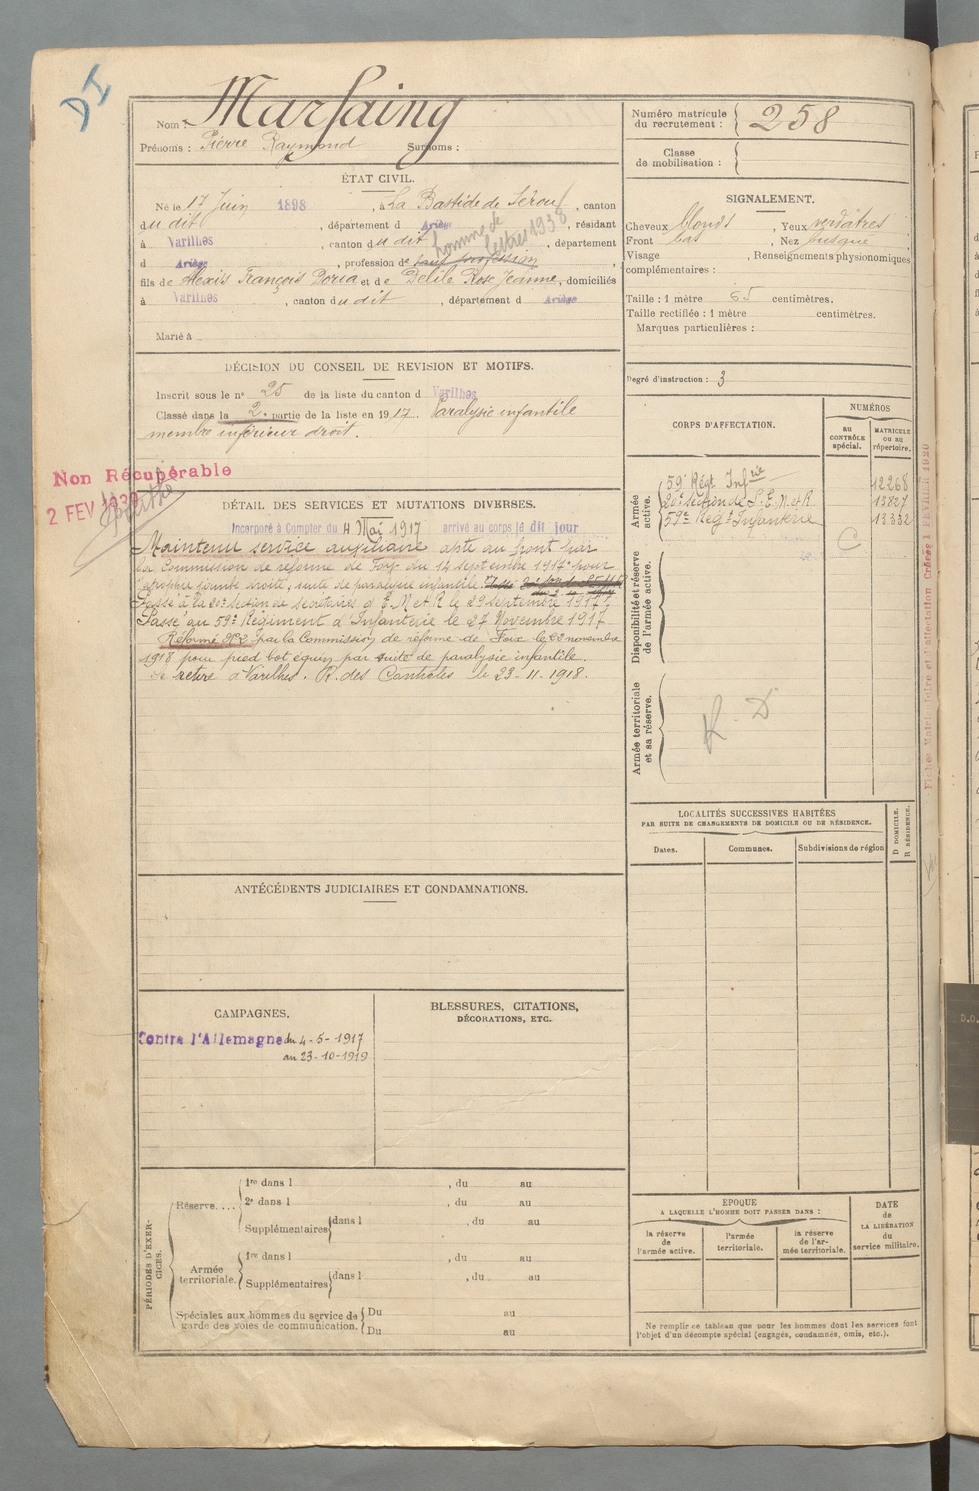 DI
Nom : Marfaing
Prénoms : Pierre Raymond Surnoms :
Numéro matricule du recrutement : 258
Classe de mobilisation :
ÉTAT CIVIL.
Né le 17 Juin 1898, à La Bastide de Sérou, canton
du dit, département d Ariège, résidant
à Varilhes, canton du dit, département
d Ariège, profession de sans profession homme de lettres 1938,
fils de Alexis François Doria et de Delile Rose Jeanne, domiciliés
à Varilhes, canton du dit, département d Ariège
Marié à
SIGNALEMENT.
Cheveux blonds, Yeux verdâtres
Front bas, Nez busqué,
Visage , Renseignements physionomiques
complémentaires :
Taille : 1 mètre 65 centimètres.
Taille rectifiée : 1 mètre centimètres.
Marques particulières :
Degré d'instruction : 3
DÉCISION DU CONSEIL DE REVISION ET MOTIFS.
Inscrit sous le n° 25 de la liste du canton d Varilhes
Classé dans la 2e partie de la liste en 1917. Paralysie infantile
membre inférieur droit.
Non Récupérable
2 FEV 1939
DÉTAIL DES SERVICES ET MUTATIONS DIVERSES.
Incorporé à Compter du 4 Mai 1917 arrivé au corps le dit jour
Maintenu service auxiliaire apte au front par
la Commission de réforme de Foix du 14 septembre 1917 pour
atrophie jambe droite, suite de paralysie infantile.
Passé à la 20e Section de secrétaires d'E. M. et R. le 29 septembre 1917.
Passé au 59e Régiment d'Infanterie le 27 Novembre 1917.
Réformé N°2 par la Commission de réforme de Foix le 22 novembre
1918 pour pied bot équin par suite de paralysie infantile.
Se retire à Varilhes. R. des Contrôles le 23-11-1918.
CORPS D'AFFECTATION.
NUMÉROS
au CONTRÔLE spécial.
MATRICULE ou au répertoire.
Armée active.
59e Régt Infrie 12268
20e Section de S. E. M. et R 13827
59e Régt Infanterie 13332
C
Disponibilité et réserve de l'armée active.
Armée territoriale et sa réserve.
R. D
LOCALITÉS SUCCESSIVES HABITÉES
PAR SUITE DE CHANGEMENTS DE DOMICILE OU DE RÉSIDENCE.
D DOMICILE.
R RÉSIDENCE.
Dates. Communes. Subdivisions de région
ANTÉCÉDENTS JUDICIAIRES ET CONDAMNATIONS.
CAMPAGNES.
Contre l'Allemagne du 4-5-1917
au 23-10-1919
BLESSURES, CITATIONS,
DÉCORATIONS, ETC.
PÉRIODES D'EXERCICES.
Réserve....
1re dans l , du au
2e dans l , du au
Supplémentaires dans l , du au
Armée territoriale.
1re dans l , du au
Supplémentaires dans l , du au
Spéciales aux hommes du service de garde des voies de communication.
Du au
Du au
EPOQUE
A LAQUELLE L'HOMME DOIT PASSER DANS :
la réserve de l'armée active.
l'armée territoriale.
la réserve de l'armée territoriale.
DATE de LA LIBÉRATION du service militaire.
Ne remplir ce tableau que pour les hommes dont les services font
l'objet d'un décompte spécial (engagés, condamnés, omis, etc.).